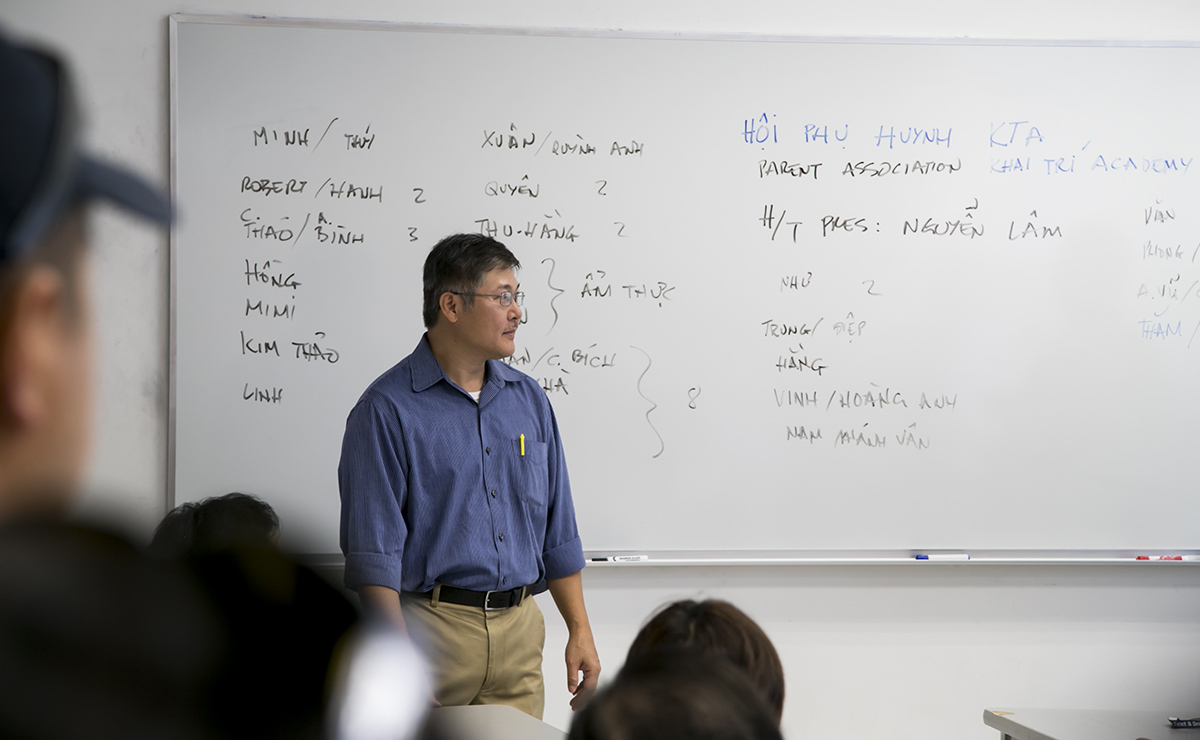 MINH / THÚY
ROBERT / HANH 2
C. THẢO / A. BÌNH 3
HỒNG
MIMI
KIM THẢO
LINH
XUÂN / QUỲNH ANH
QUYÊN 2
THU-HẰNG 2
ẨM THỰC
/ C. BÍCH
HÀ
8
HỘI PHỤ HUYNH KTA
PARENT ASSOCIATION KHAI TRÍ ACADEMY
H/T PRES: NGUYỄN LÂM
NHƯ 2
TRUNG / ĐIỆP
HẰNG
VINH / HOÀNG ANH
NAM / KHÁNH VÂN
VĂN
PHONG /
A. VŨ /
THẮM /